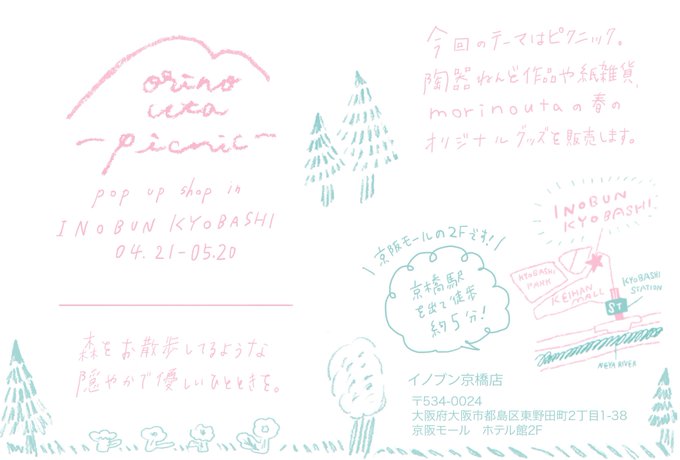 orino
uta
picnic
pop up shop in
INOBUN KYOBASHI
04.21-05.20
森をお散歩してるような
穏やかで優しいひとときを。
今回のテーマはピクニック。
陶器ねんど作品や紙雑貨、
morinoutaの春の
オリジナルグッズを販売します。
京阪モールの2Fです!
京橋駅
を出て徒歩
約5分!
INOBUN
KYOBASHI
KYOBASHI
PARK
KEIHAN
MALL
KYOBASHI
STATION
ST
NEYA RIVER
イノブン京橋店
〒534-0024
大阪府大阪市都島区東野田町2丁目1-38
京阪モール ホテル館2F